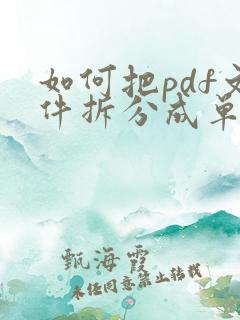 如何把pdf文
件拆分成单
甄海霞
未经同意禁止转载